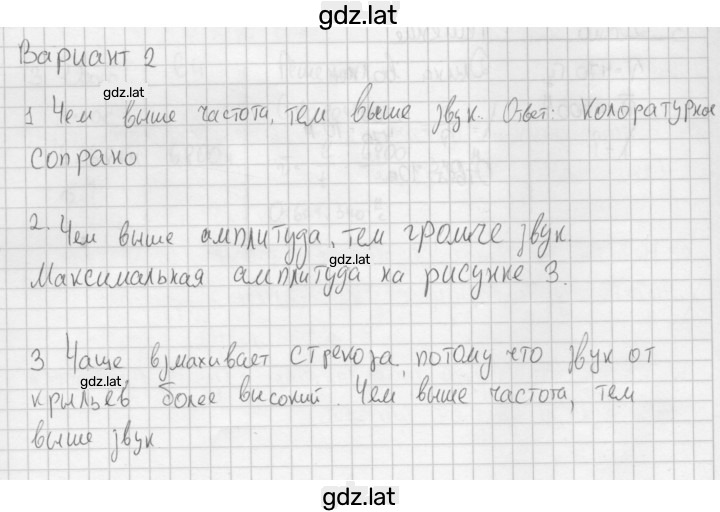 gdz.lat
Вариант 2
gdz.lat
1 Чем выше частота, тем выше звук. Ответ: Колоратурное
сопрано
2. Чем выше амплитуда, тем громче звук.
gdz.lat
Максимальная амплитуда на рисунке 3.
3 Чаще взмахивает стрекоза, потому что звук от
gdz.lat
крыльев более высокий. Чем выше частота, тем
выше звук
gdz.lat